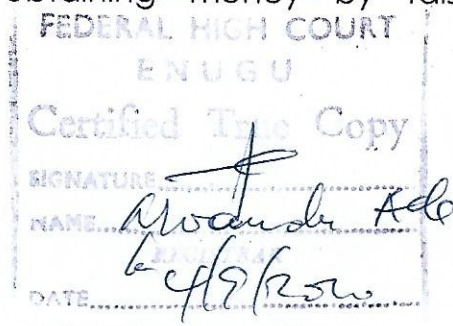 obtaining money by fals
FEDERAL HIGH COURT
ENUGU
Certified True Copy
SIGNATURE
NAME
REGISTRAR
DATE 4/9/2020